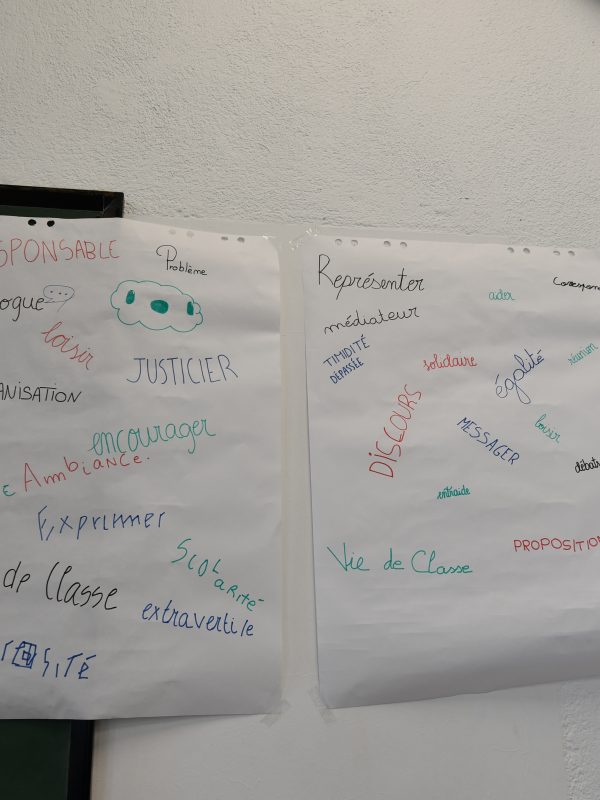 SPONSABLE
Problème
ogue
loisir
JUSTICIER
ANISATION
encourager
Ambiance.
Exprimer
SCOLARITÉ
de Classe
extraverti/e
SITÉ
Représenter
aider
Correspon
médiateur
TIMIDITÉ
DÉPASSÉE
solidaire
égalité
réunion
DISCOURS
MESSAGER
loisir
débat
entraide
PROPOSITION
Vie de Classe